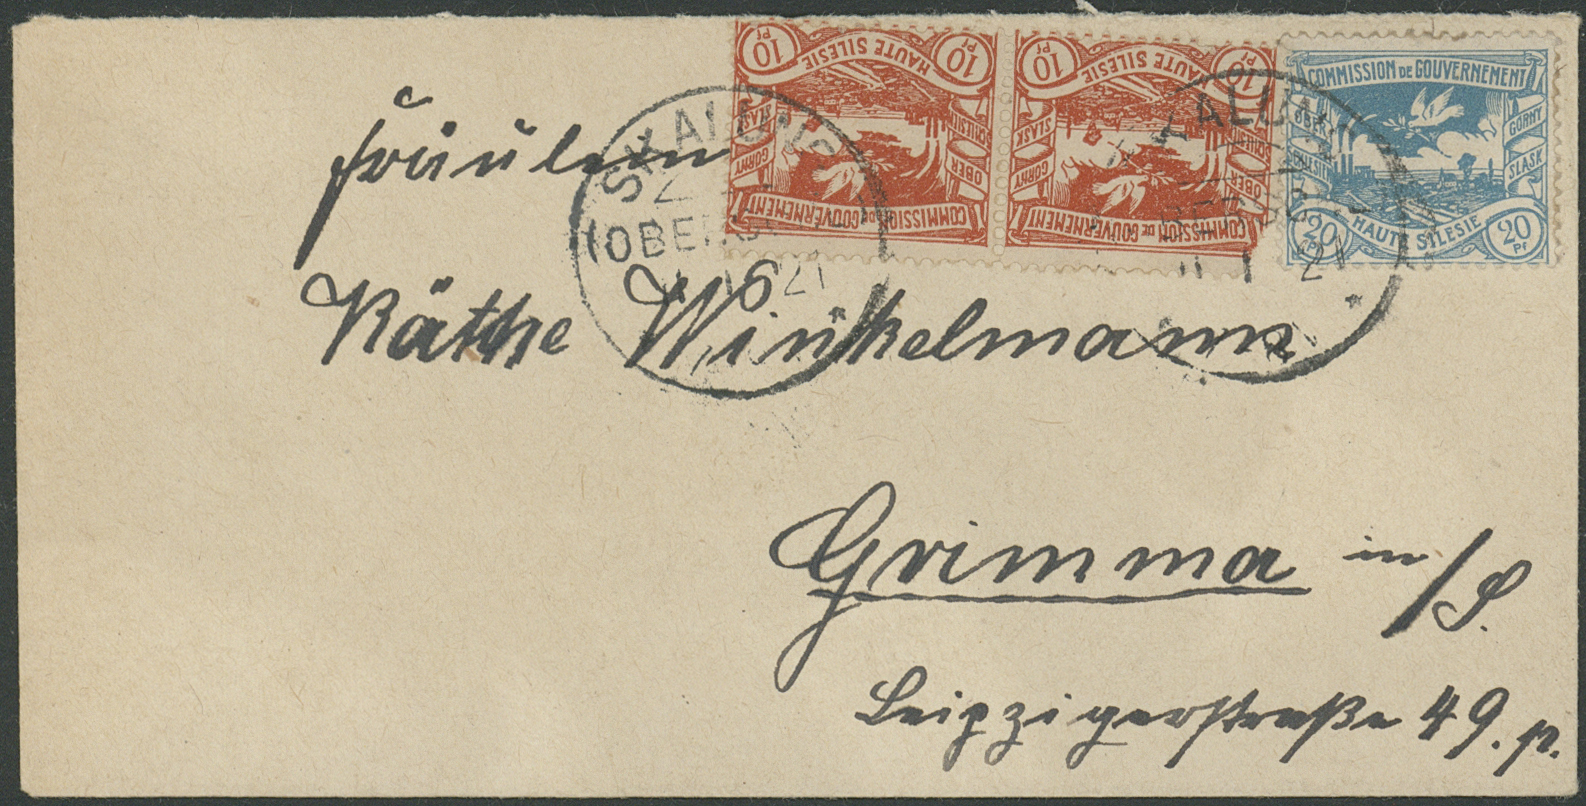 10 Pf 10 Pf
HAUTE SILESIE
OBER SCHLESIEN
GORNY SLASK
COMMISSION DE GOUVERNEMENT
10 Pf 10 Pf
HAUTE SILESIE
OBER SCHLESIEN
GORNY SLASK
COMMISSION DE GOUVERNEMENT
COMMISSION DE GOUVERNEMENT
OBER
GÓRNY SLASK
20 Pf 20 Pf
HAUTE SILESIE
SKALUNG
21
21
Fräulein
Käthe Winkelmann
Grimma in/S.
Leipzigerstraße 49. p.